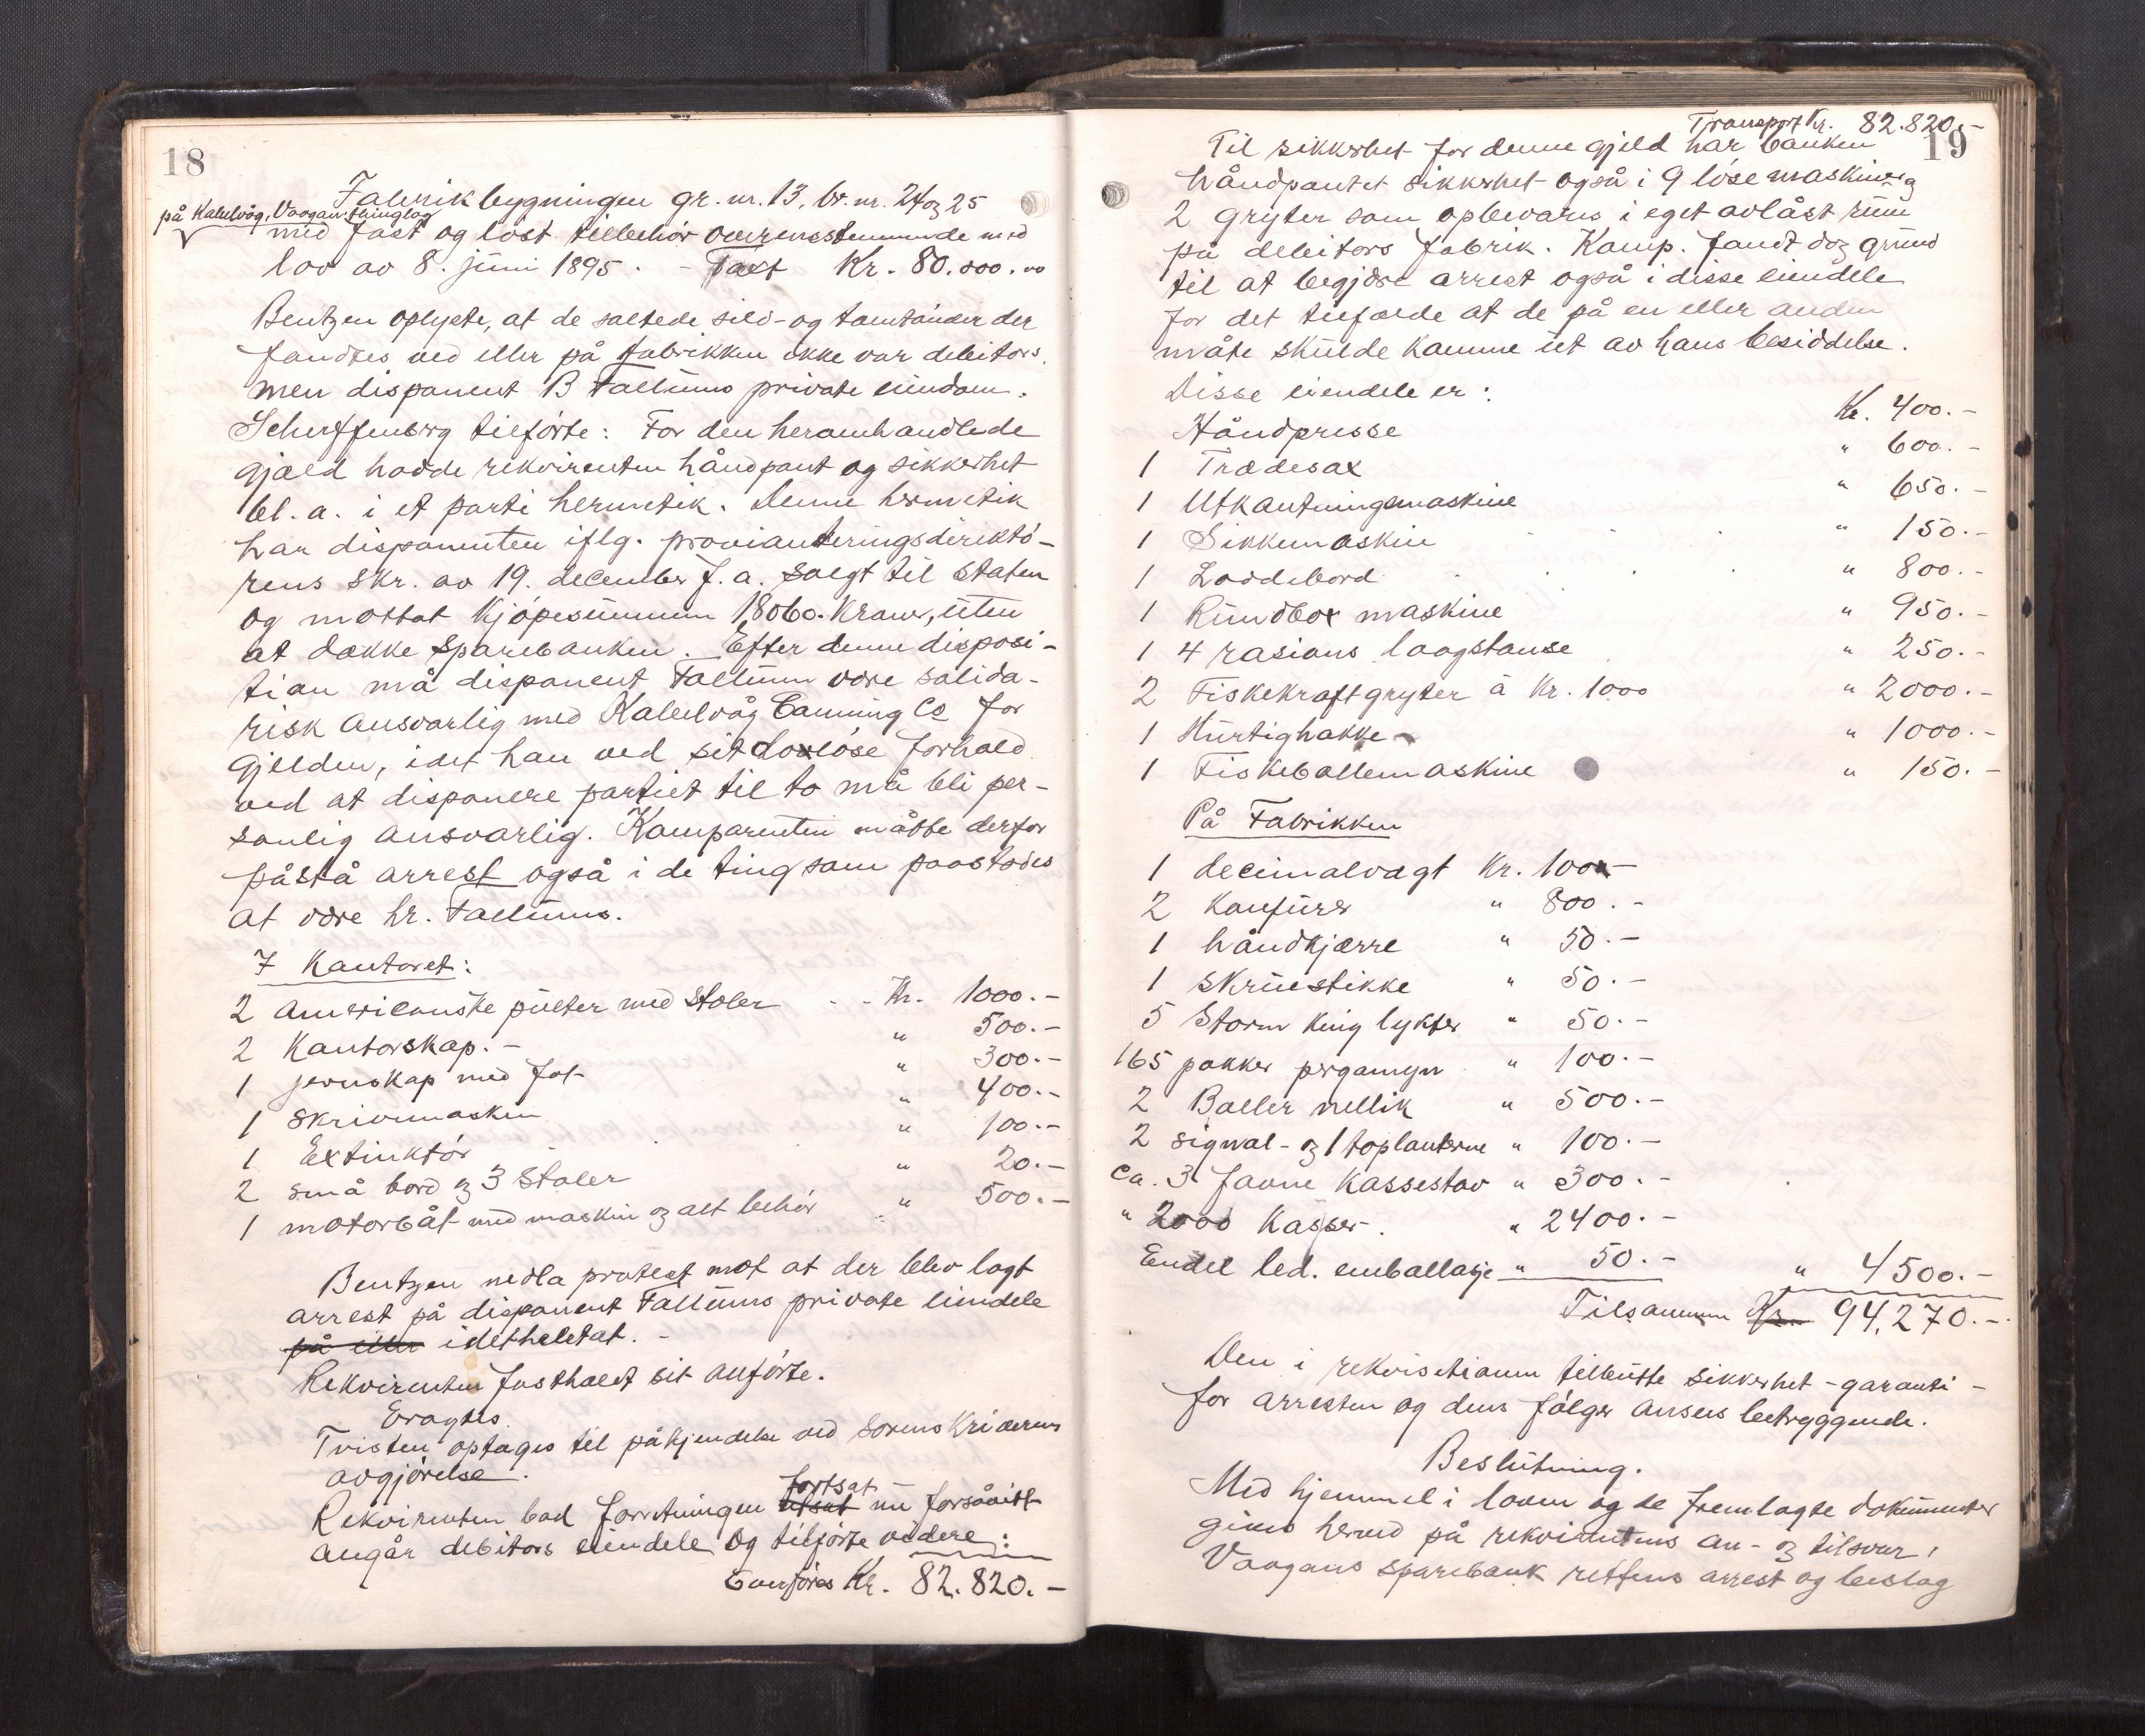 18
Fabrikbygningen gr. nr. 13, br. nr. 24 og 25
på Kalvåg, Vaagan thinglag
med fast og löst tillbehör overensstemmende med
lov av 8. juni 1895. - Takst Kr. 80.000.00
Bentzen oplyste, at de saltede sild- og tomtönder der
fandtes ved eller på fabrikken ikke var debitors,
men disponent B Fallums private eiendom.
Scheffenberg tilförte: For den heromhandlede
gjæld hadde rekvirenten håndpant og sikkerhet
bl. a. i et parti hermetik. Denne hermetik
har disponenten iflg. provianteringsdirektö-
rens skr. av 19. december f. a. solgt til staten
og mottat kjöpesummen 18060. Kroner, uten
at dække sparebanken. Efter denne disposi-
tion må disponent Fallum være solida-
risk ansvarlig med Kalvåg Canning Co for
gjelden, idet han ved sit lovlöse forhold
ved at disponere partiet til to må bli per-
sonlig ansvarlig. Komparenten måtte derfor
påstå arrest også i de ting som paastodes
at være hr. Fallums.
I Kontoret:
2 amerikanske pulter med stoler - - Kr. 1000.-
2 Kontorskap. - " 500.-
1 jernskap med fot " 300.-
1 skrivemaskin " 400.-
1 Extinktör " 100.-
2 små bord og 3 stoler " 20.-
1 motorbåt med maskin og alt behör " 500.-
Bentzen nedla protest mot at der blev lagt
arrest på disponent Fallums private eiendele
på eller idetheletat. -
Rekvirenten fastholdt sit anförte.
Eragtes.
Tvisten optages til påkjendelse ved sorenskriverens
avgjörelse.
fortsat
Rekvirenten bad forretningen utsat nu forsåvitt
angår debitors eiendele og tilförte videre:
Overföres Kr. 82.820.-
Transport Kr. 82.820.-
19
Til sikkerhet for denne gjeld har banken
håndpantet sikkerhet også i 9 löse maskiner og
2 gryter som opbevares i eget avlåst rum
på debitors fabrik. Komp. fandt dog grund
til at begjære arrest også i disse eiendele
for det tilfælde at de på en eller anden
måte skulde komme ut av hans besiddelse.
Disse eiendele er:
Håndpresse Kr. 400.-
1 Trædesax " 600.-
1 Utkantningsmaskine " 650.-
1 Sikkemaskin " 150.-
1 Loddebord " 800.-
1 Rundbox maskine " 950.-
1 4 rasions laagstanse " 250.-
2 Fiskekraftgryter à Kr. 1000 " 2000.-
1 Hurtighakke " 1000.-
1 Fiskebollemaskine " 150.-
På Fabrikken
1 decimalvægt Kr. 100.-
2 Komfurer " 800.-
1 håndkjærre " 50.-
1 skruestikke " 50.-
5 Storm King lykter " 50.-
165 pakker pergamyn " 100.-
2 Baller nellik " 500.-
2 signal- og 1 toplanterne " 100.-
ca. 3 favne Kassestav " 300.-
" 2000 Kasser. " 2400.-
Endel led. emballasje " 50.- " 4500.-
Tilsammen Kr. 94,270.-
Den i rekvisitionen tilbutte sikkerhet - garanti -
for arresten og dens fölger ansees betryggende.
Beslutning.
Med hjemmel i loven og de fremlagte dokumenter
gives herved på rekvirentens an- og tilsvar,
Vaagans sparebank rettens arrest og beslag